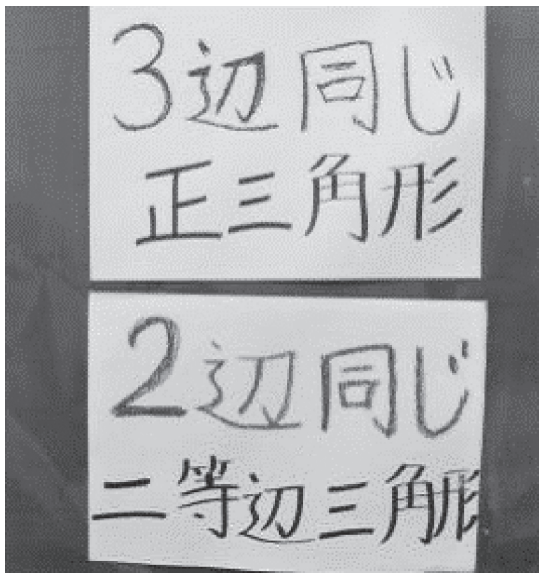 3辺同じ
正三角形
2辺同じ
二等辺三角形